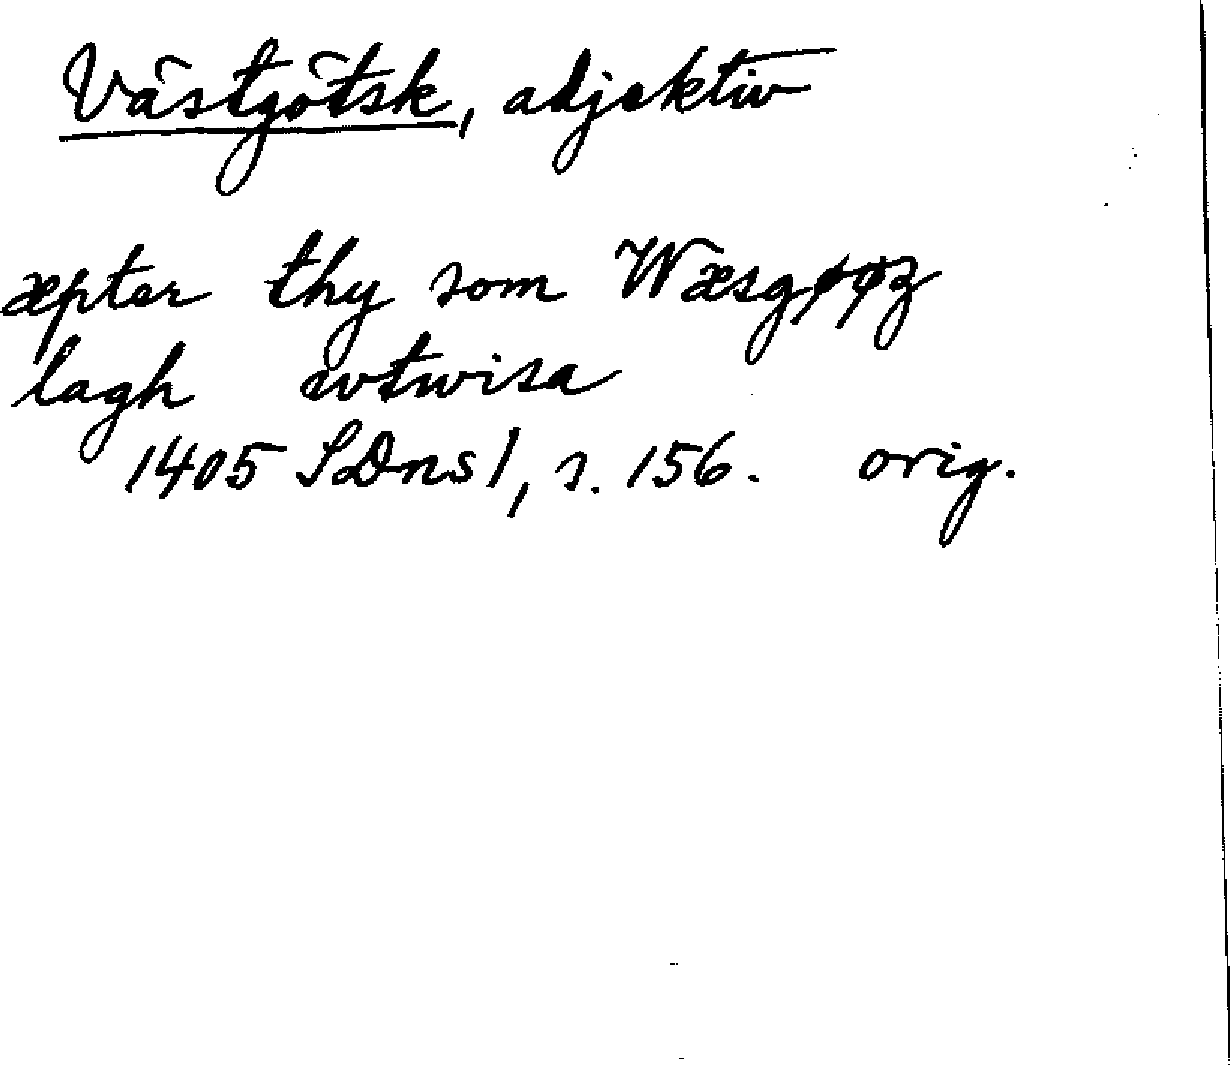 Västgötsk, adjektiv
æpter thy som Wæsgøøz
lagh wtwisa
1405 SDns 1, s. 156. orig.